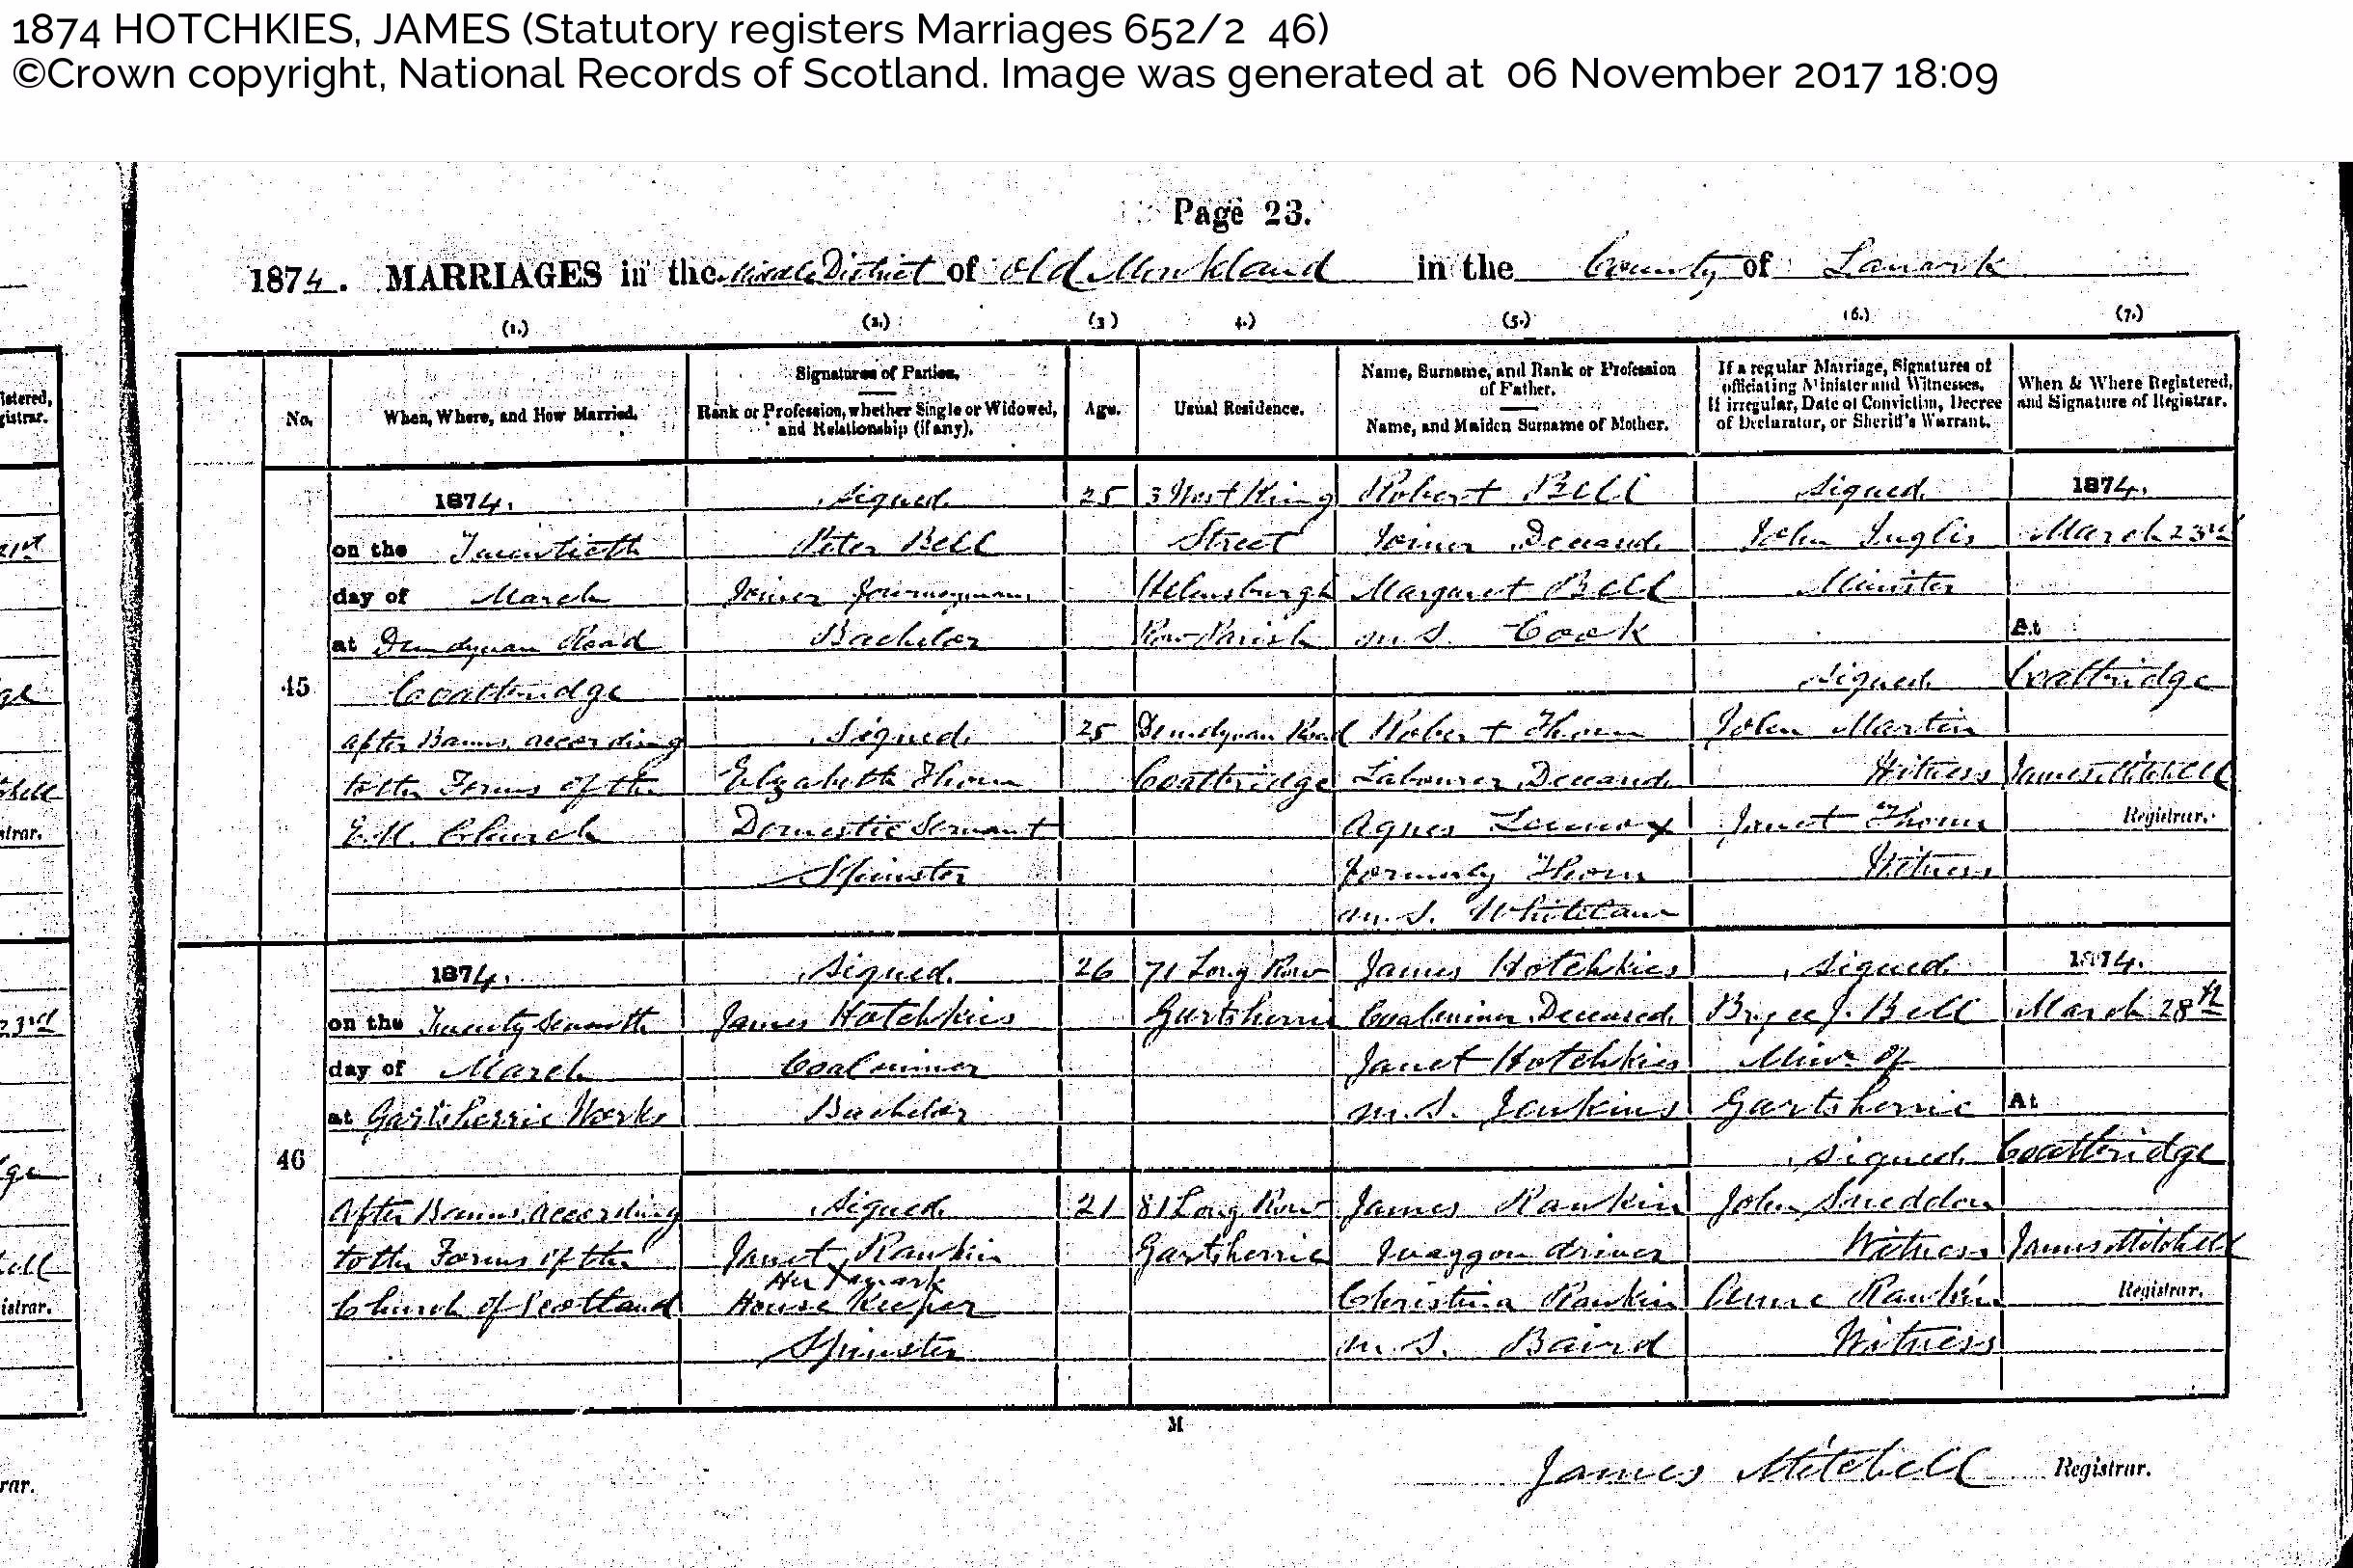 1874 HOTCHKIES, JAMES (Statutory registers Marriages 652/2 46)
©Crown copyright, National Records of Scotland. Image was generated at 06 November 2017 18:09
Page 23.
1874. MARRIAGES in the Middle District of Old Monkland in the County of Lanark
(1.) (2.) (3) 4.) (5.) (6.) (7.)
No.
When, Where, and How Married.
Signatures of Parties.
Rank or Profession, whether Single or Widowed,
and Relationship (if any).
Age.
Usual Residence.
Name, Surname, and Rank or Profession
of Father.
Name, and Maiden Surname of Mother.
If a regular Marriage, Signatures of
officiating Minister and Witnesses.
If irregular, Date of Conviction, Decree
of Declarator, or Sheriff's Warrant.
When & Where Registered,
and Signature of Registrar.
45
1874.
on the Twentieth
day of March
at Dundyvan Road
Coatbridge
after Banns according
to the Forms of the
Church
signed
Peter Bell
Joiner Journeyman
Bachelor
signed
Elizabeth Thom
Domestic Servant
Spinster
25
25
3 West King
Street
Helensburgh
Row Parish
Dundyvan Road
Coatbridge
Robert Bell
Joiner Deceased
Margaret Bell
m.S. Cook
Robert Thom
Labourer Deceased
Agnes Lennox
formerly Thom
m.S. Whitelaw
signed
John Inglis
Minister
signed
John Martin
Witness
Janet Thom
Witness
1874.
March 23rd
At
Coatbridge
James Mitchell
Registrar.
46
1874.
on the Twenty Seventh
day of March
at Gartsherrie Works
After Banns according
to the Forms of the
Church of Scotland
signed
James Hotchkies
Coalminer
Bachelor
signed
Janet Rankin
Her X mark
House Keeper
Spinster
26
21
71 Long Row
Gartsherrie
81 Long Row
Gartsherrie
James Hotchkies
Coalminer Deceased
Janet Hotchkies
m.S. Jenkins
James Rankin
Waggon driver
Christina Rankin
m.S. Baird
signed
Bryce J. Bell
Minr of
Gartsherrie
signed
John Sneddon
Witness
Anne Rankin
Witness
1874.
March 28th
At
Coatbridge
James Mitchell
Registrar.
M
James Mitchell Registrar.
istered,
gistrar.
21st
strar.
23rd
istrar.
rar.